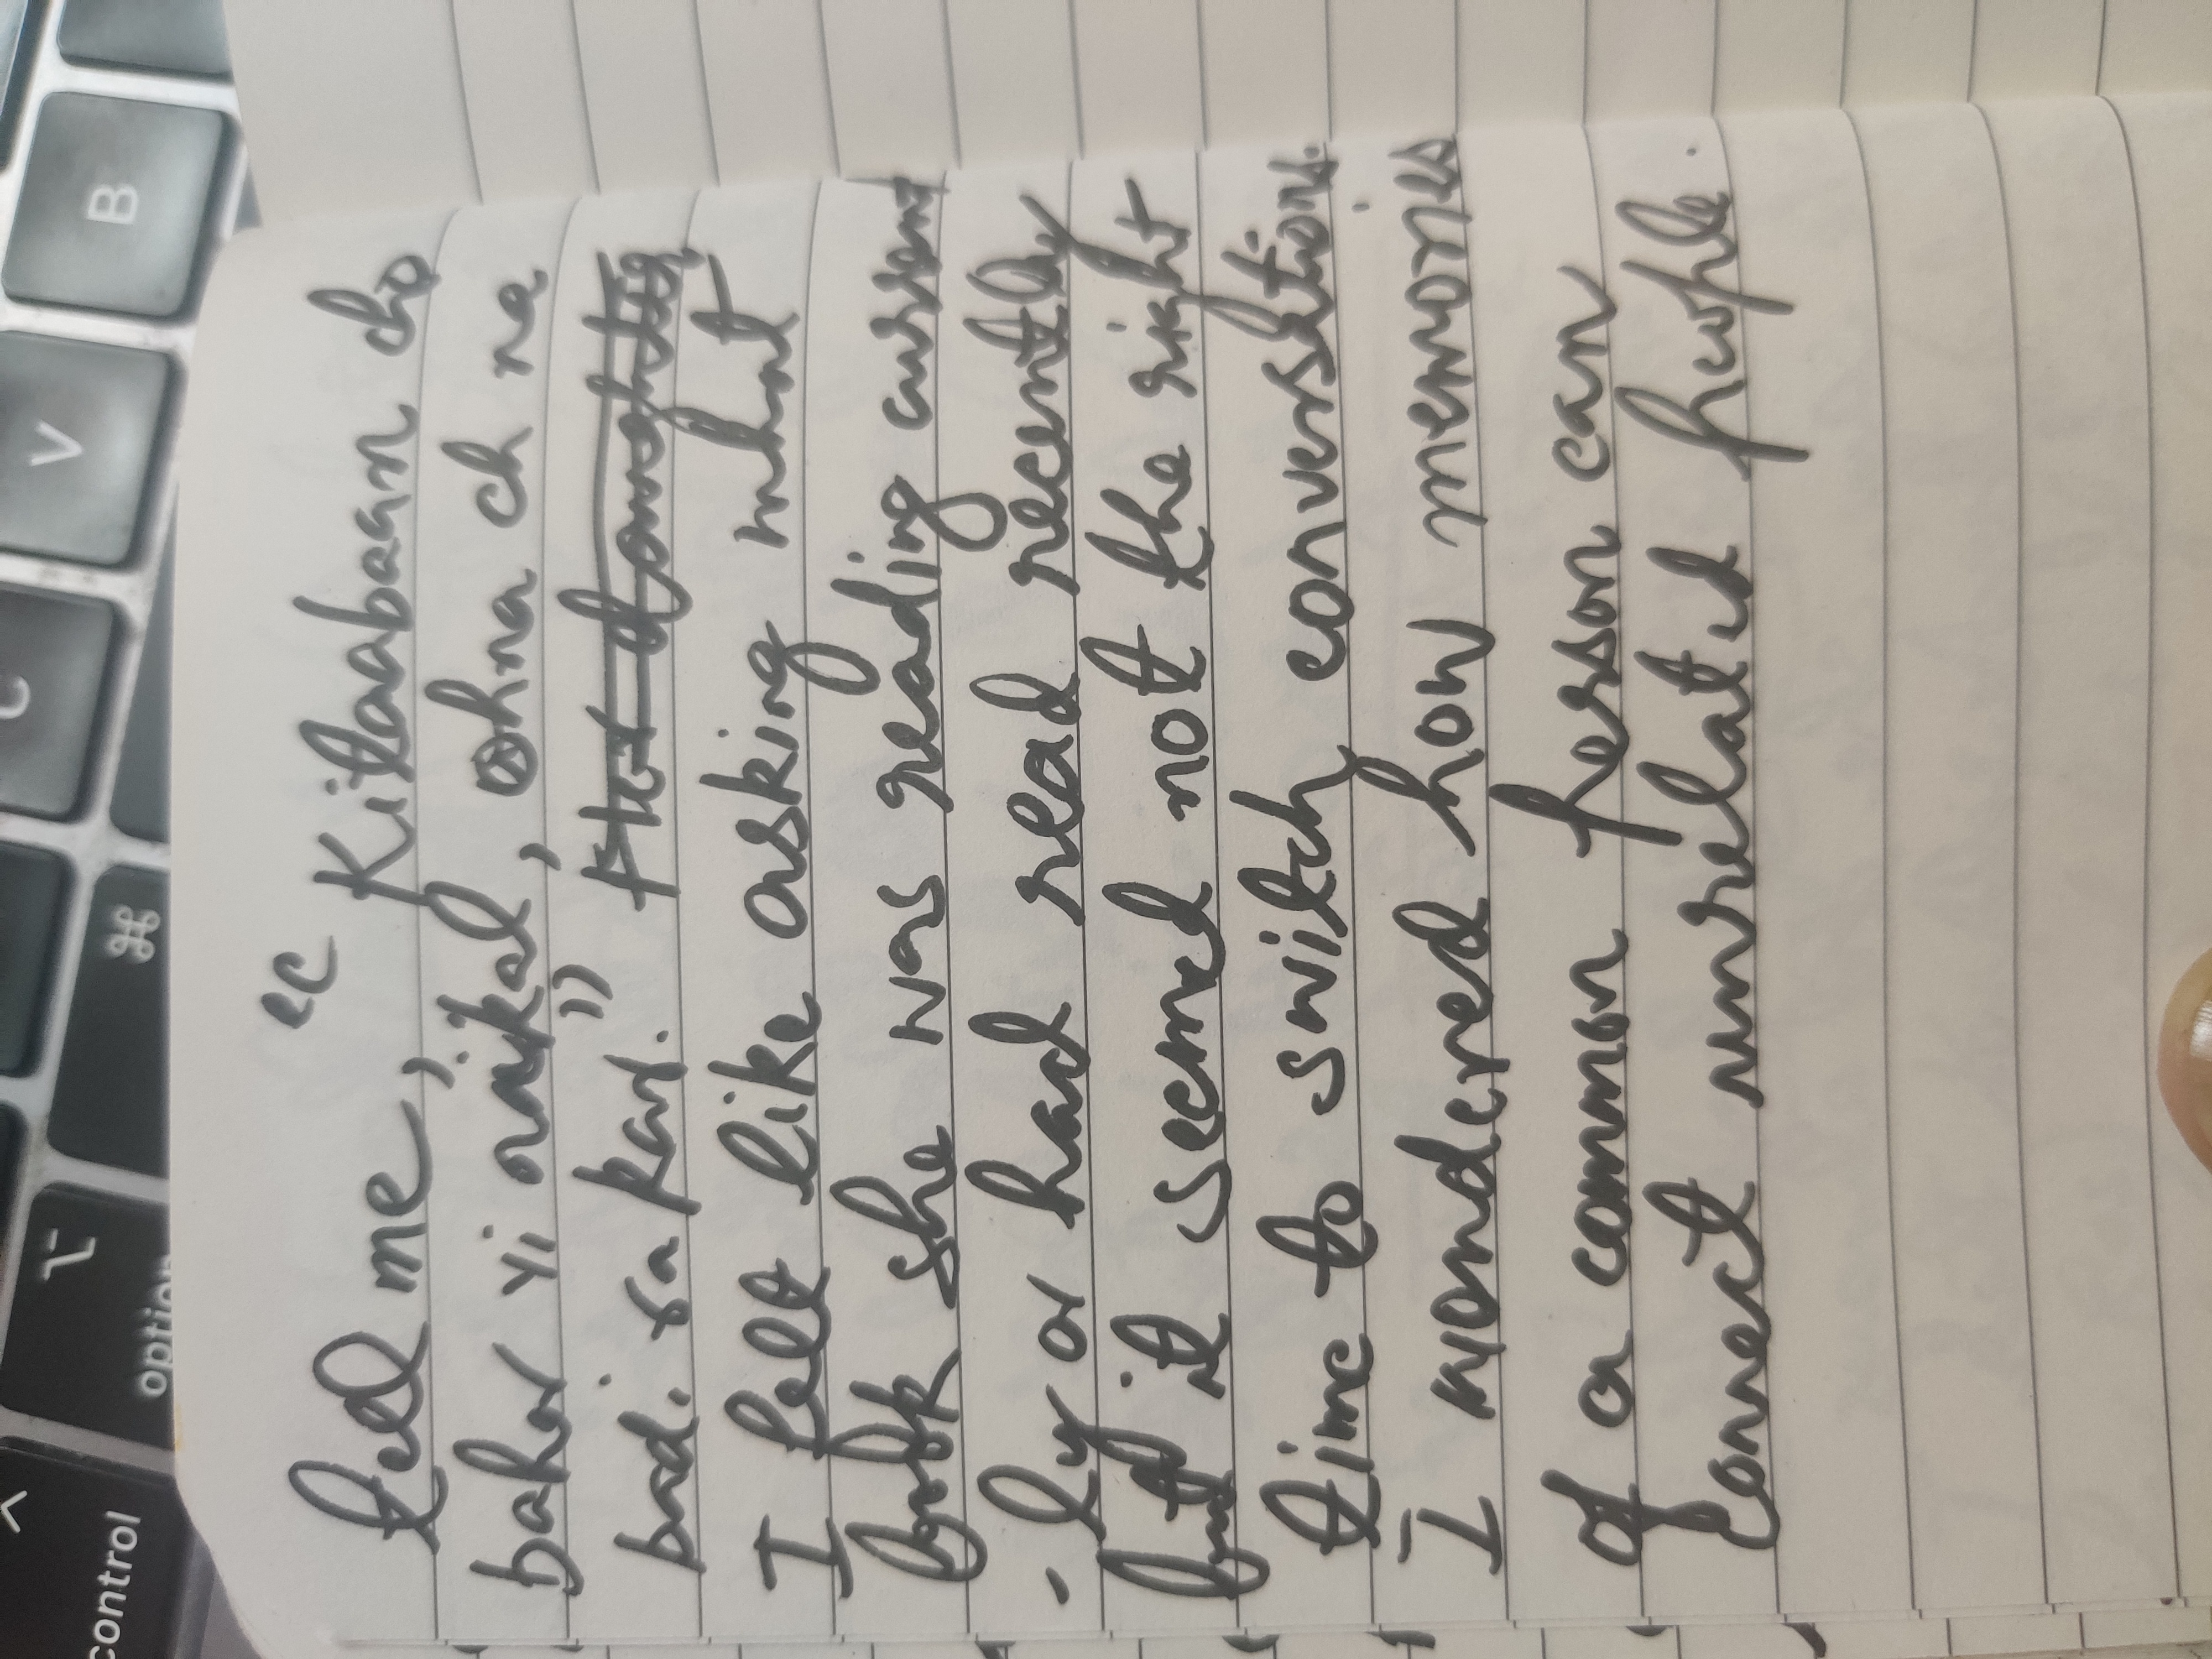 ^
control
⌥
option
⌘
C
V
B
tell me, "Kitaabaan cho
bahar vi nikal, ohna ch na
vad. ra kar." Her daughter
I felt like asking what
book she was reading current
-ly or had read recently
but it seemed not the right
time to switch conversations.
I wondered how memories
of a common person can
connect unrelated people.